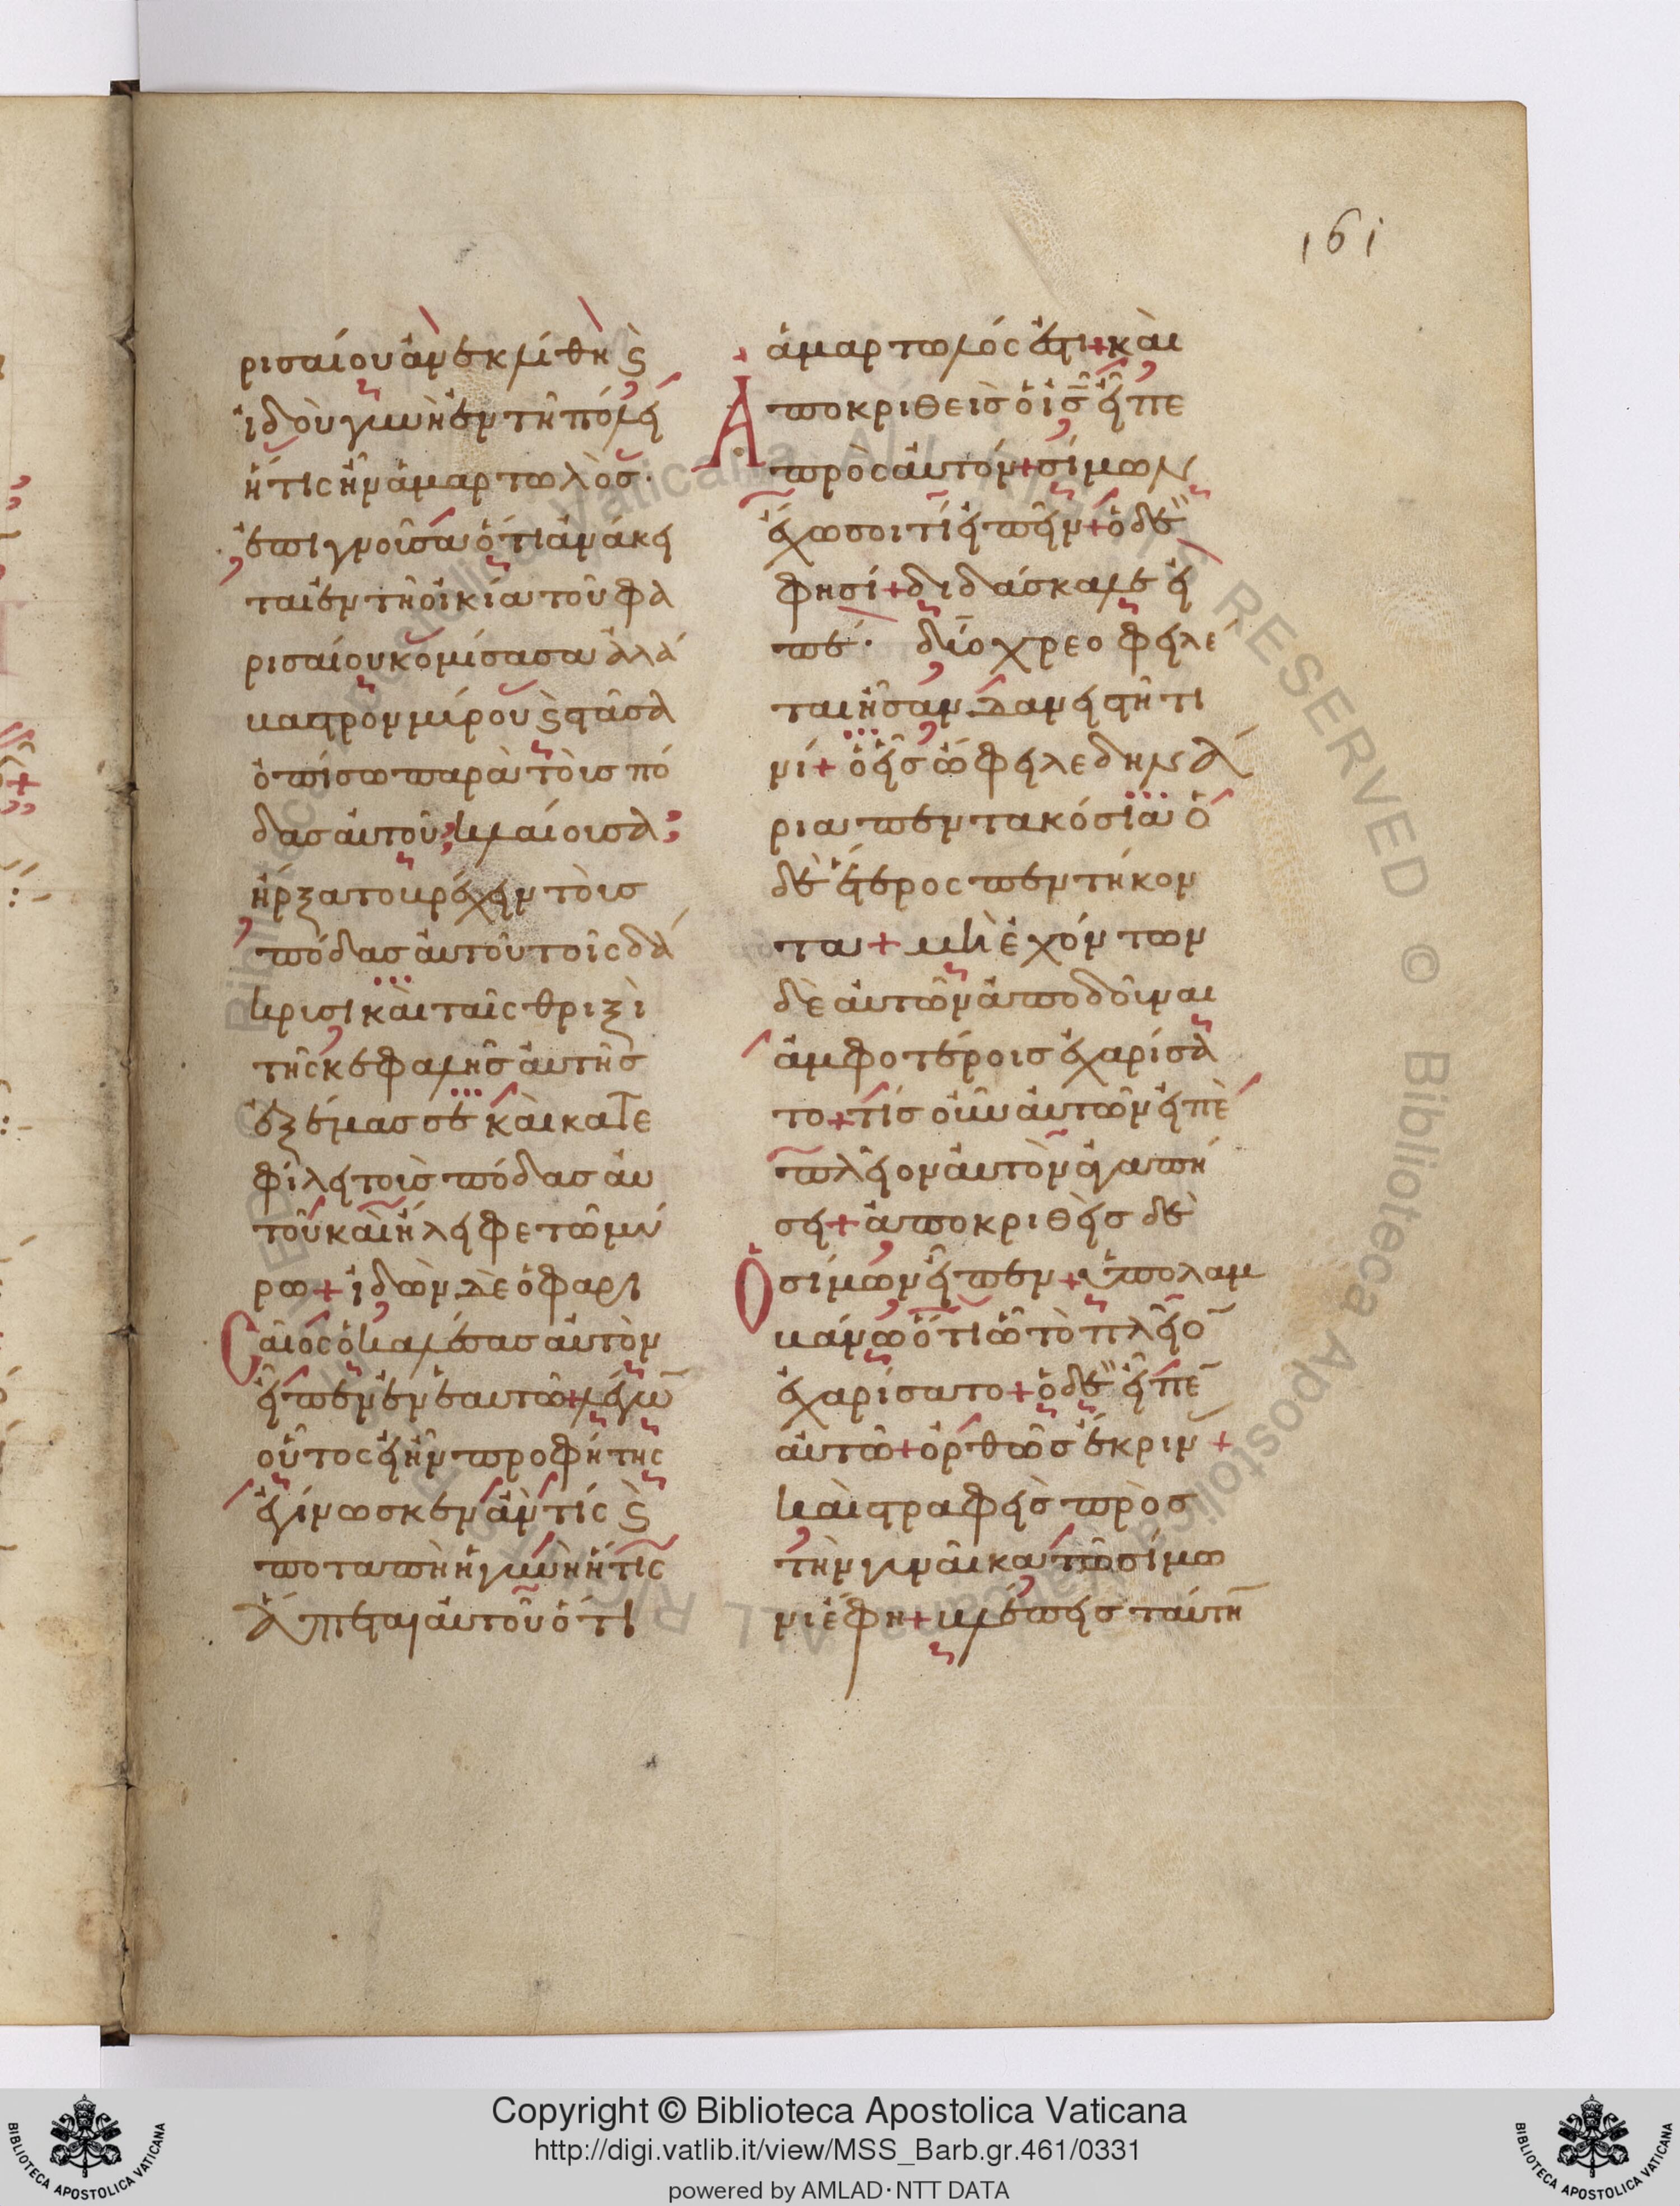 161
ρισαίου ἀνεκλίθη ϛ
ἰδοὺ γυνὴ ἐν τῆ πόλει
ἥτις ἦν ἁμαρτωλὸσ·
ἐπιγνοῦσα ὅτι ἀνάκει
ται ἐν τῆ οἰκία τοῦ φα
ρισαίου κομίσασα ἀλά
βαστρον μύρου ϛ στᾶσα
ὀπίσω παρὰ τοὺσ πό
δασ αὐτοῦ κλαίουσα
ἤρξατο βρέχειν τοὺσ
πόδασ αὐτοῦ τοῖς δά
κρυσι καὶ ταῖς θριξὶ
τῆς κεφαλῆσ αὐτῆσ
ἐξέμασσε καὶ κατε
φίλει τοὺσ πόδασ αὐ
τοῦ καὶ ἤλειφε τῶ μύ
ρω + ἰδὼν δὲ ὁ φαρι
Σαῖος ὁ καλέσασ αὐτὸν
εἶπεν ἐν ἑαυτῶ + λέγω̅
οὗτος εἰ ἦν προφήτης
ἐγίνωσκεν ἂν τίς ϛ
ποταπὴ ἡ γυνὴ ἥτις
ἅπτεται αὐτοῦ ὅτι
ἁμαρτωλός ἐστι + καὶ
Ἀποκριθεὶσ ὁ ἰ̅σ̅ εἶπε
πρὸς αὐτόν + σίμων
ἔχω σοι τί εἰπεῖν + ὁ δὲ
φησί + διδάσκαλε εἰ
πέ· δύο χρεοφειλέ
ται ἦσαν δανειστῆ τι
νί + ὁ εἷσ ὤφειλε δηνά
ρια πεντακόσια ὁ
δὲ ἕτερος πεντήκον
τα + μὴ ἐχόντων
δὲ αὐτῶν ἀποδοῦναι
ἀμφοτέροισ ἐχαρίσα
το + τίσ οὖν αὐτῶν εἰπὲ
πλεῖον αὐτὸν ἀγαπή
σει + ἀποκριθεὶσ δὲ
Ὁ σίμων εἶπεν + ὑπολαμ
βάνω ὅτι ὧ τὸ πλεῖο̅
ἐχαρίσατο + ὁ δὲ εἶπε̅
αὐτῶ + ὀρθῶσ ἔκριν +
καὶ στραφεὶσ πρὸσ
τὴν γυναῖκα τῶ σίμω
νι ἔφη + βλέπεισ ταύτη̅
Copyright © Biblioteca Apostolica Vaticana
http://digi.vatlib.it/view/MSS_Barb.gr.461/0331
powered by AMLAD·NTT DATA